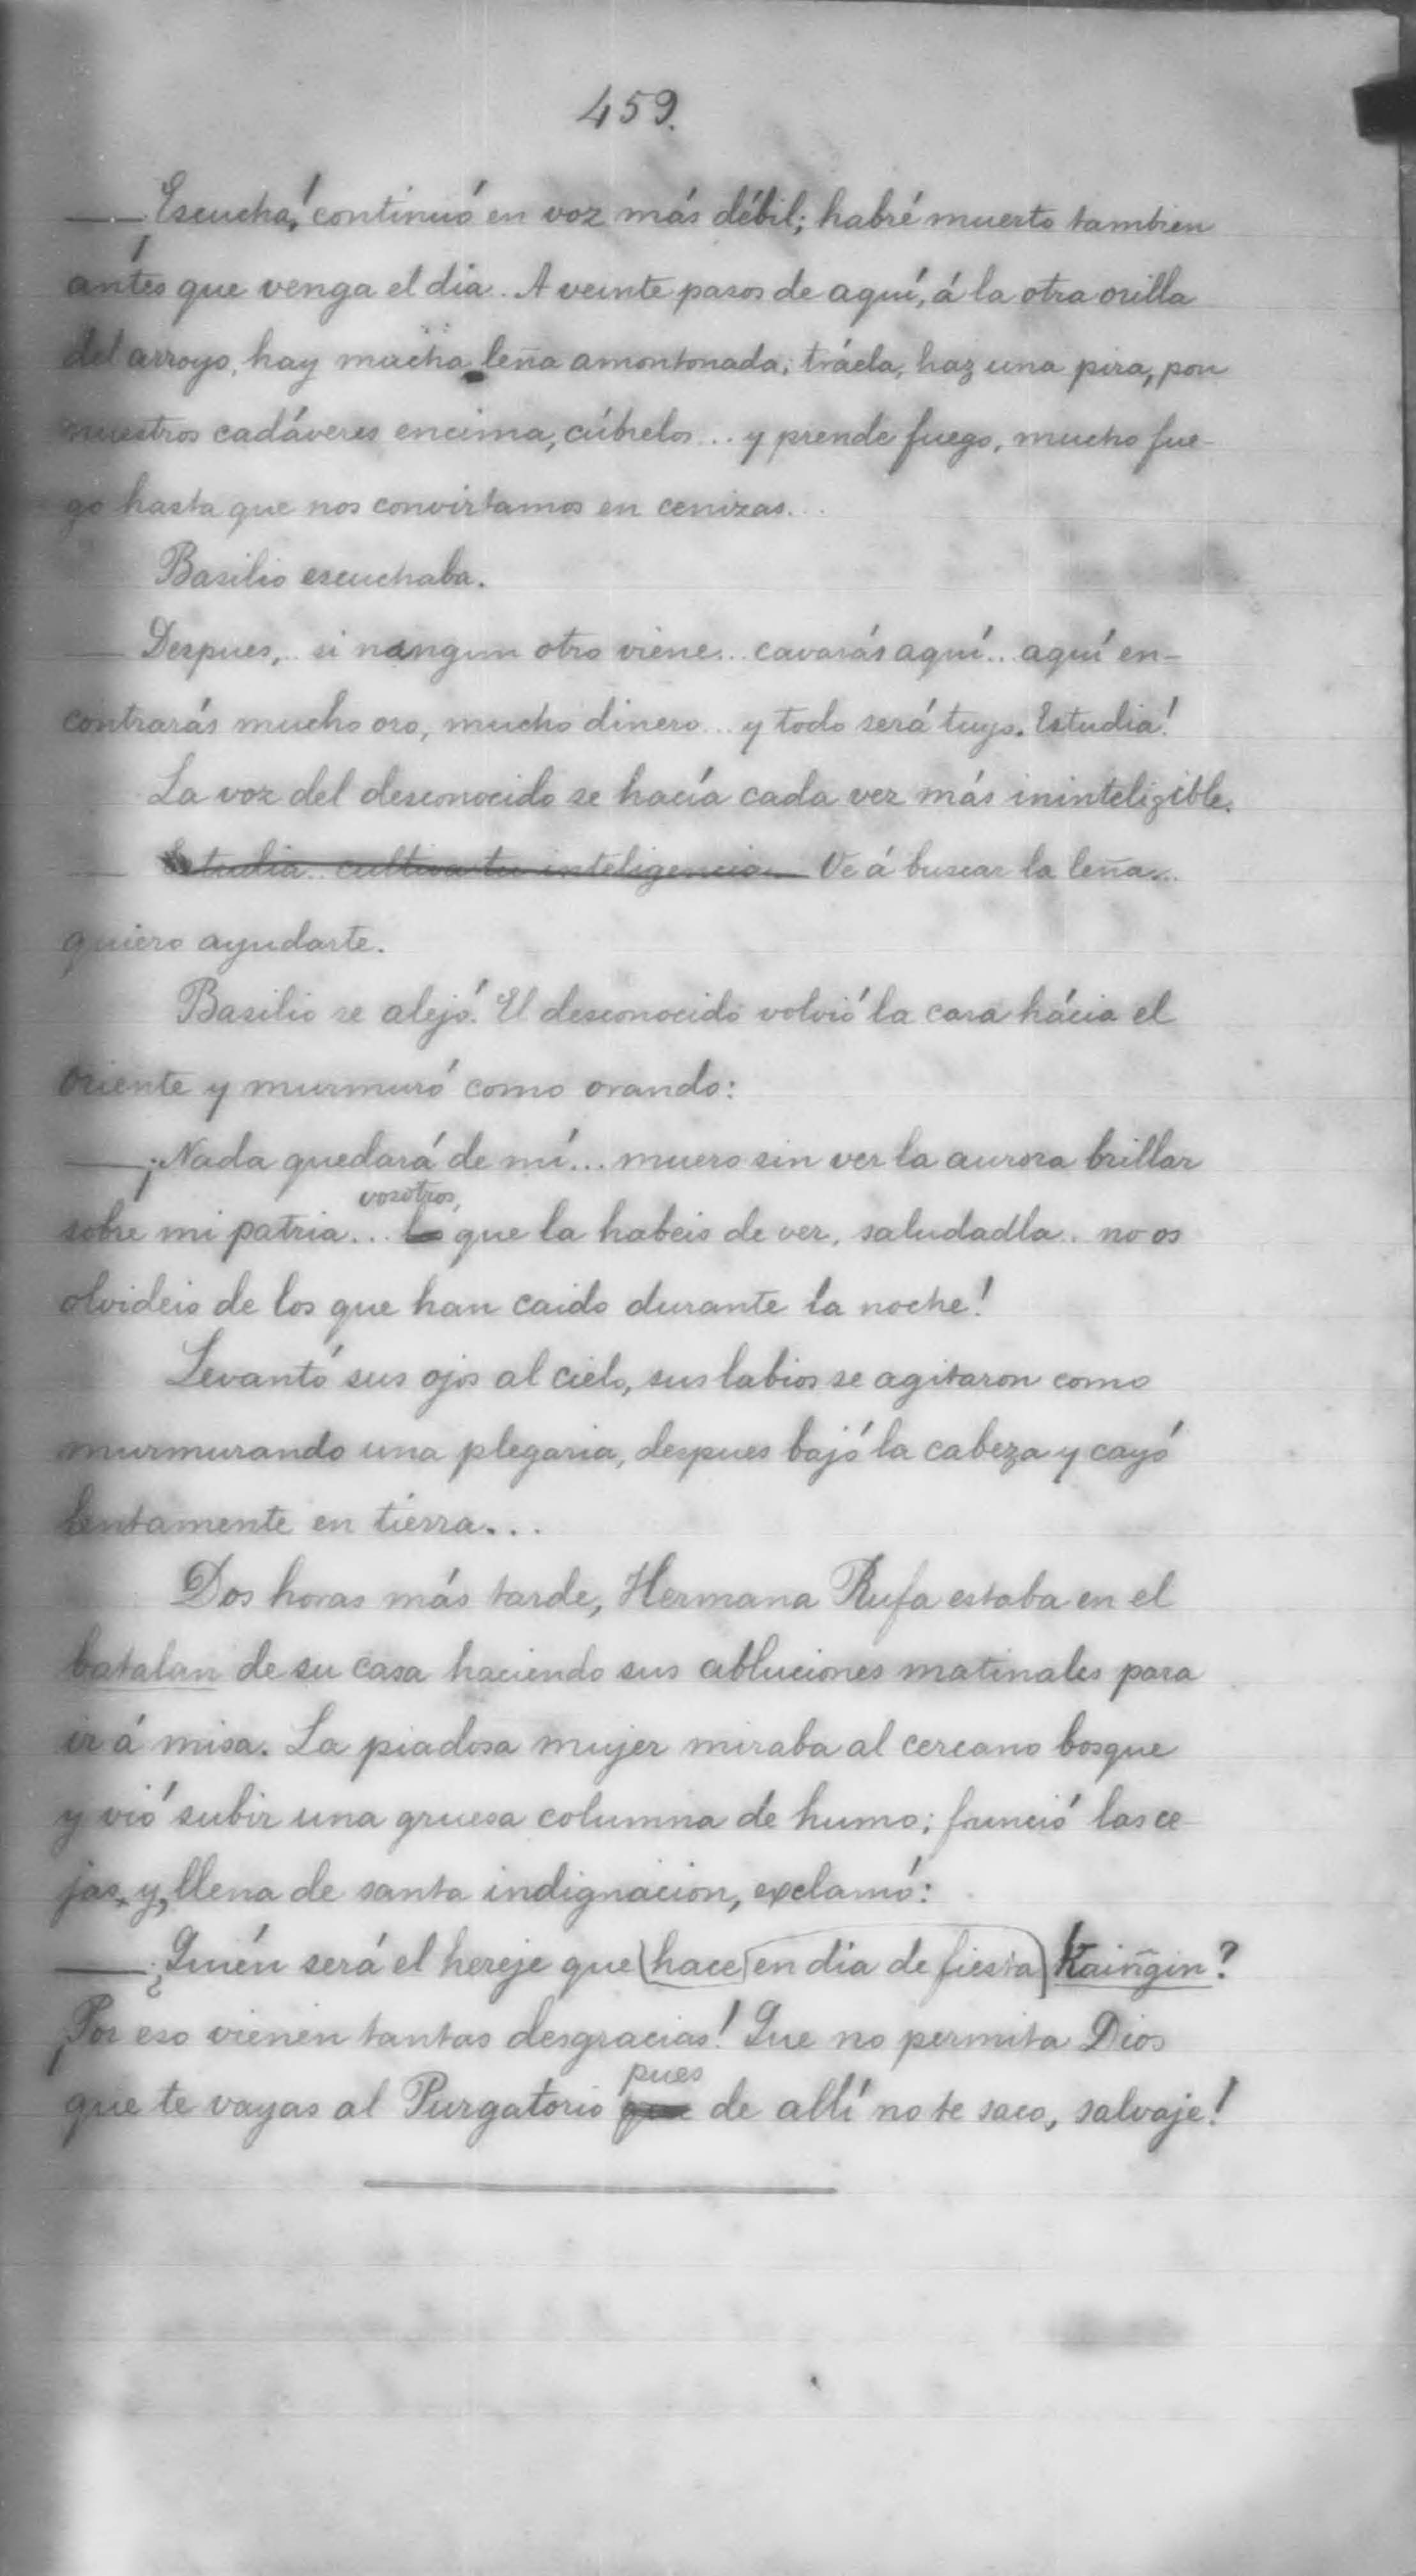 459.
— Escucha! continuó en voz más débil; habré muerto tambien
ántes que venga el dia.. A veinte pasos de aquí, á la otra orilla
del arroyo, hay mucha leña amontonada; tráela, haz una pira, pon
nuestros cadáveres encima, cúbrelos... y prende fuego, mucho fue-
go hasta que nos convirtamos en cenizas...
Basilio escuchaba.
— Despues,.. si nangun otro viene... cavarás aquí.. aquí en-
contrarás mucho oro, mucho dinero... y todo será tuyo. Estudia!
La voz del desconocido se hacía cada vez más ininteligible.
— Estudia.. cultiva tu inteligencia Ve á buscar la leña...
quiero ayudarte.
Basilio se alejó. El desconocido volvió la cara hácia el
Oriente y murmuró como orando:
— ¡Nada quedará de mí... muero sin ver la aurora brillar
vosotros,
sobre mi patria... lo que la habeis de ver, saludadla.. no os
olvideis de los que han caido durante la noche!
Levantó sus ojos al cielo, sus labios se agitaron como
murmurando una plegaria, despues bajó la cabeza y cayó
lentamente en tierra...
Dos horas más tarde, Hermana Rufa estaba en el
batalan de su casa haciendo sus abluciones matinales para
ir á misa. La piadosa mujer miraba al cercano bosque
y vió subir una gruesa columna de humo; frunció las ce-
jas, y, llena de santa indignacion, exclamó:
— ¿Quién será el hereje que hace en dia de fiesta Kaiñgin?
¡Por eso vienen tantas desgracias! Que no permita Dios
pues
que te vayas al Purgatorio que de allí no te saco, salvaje!